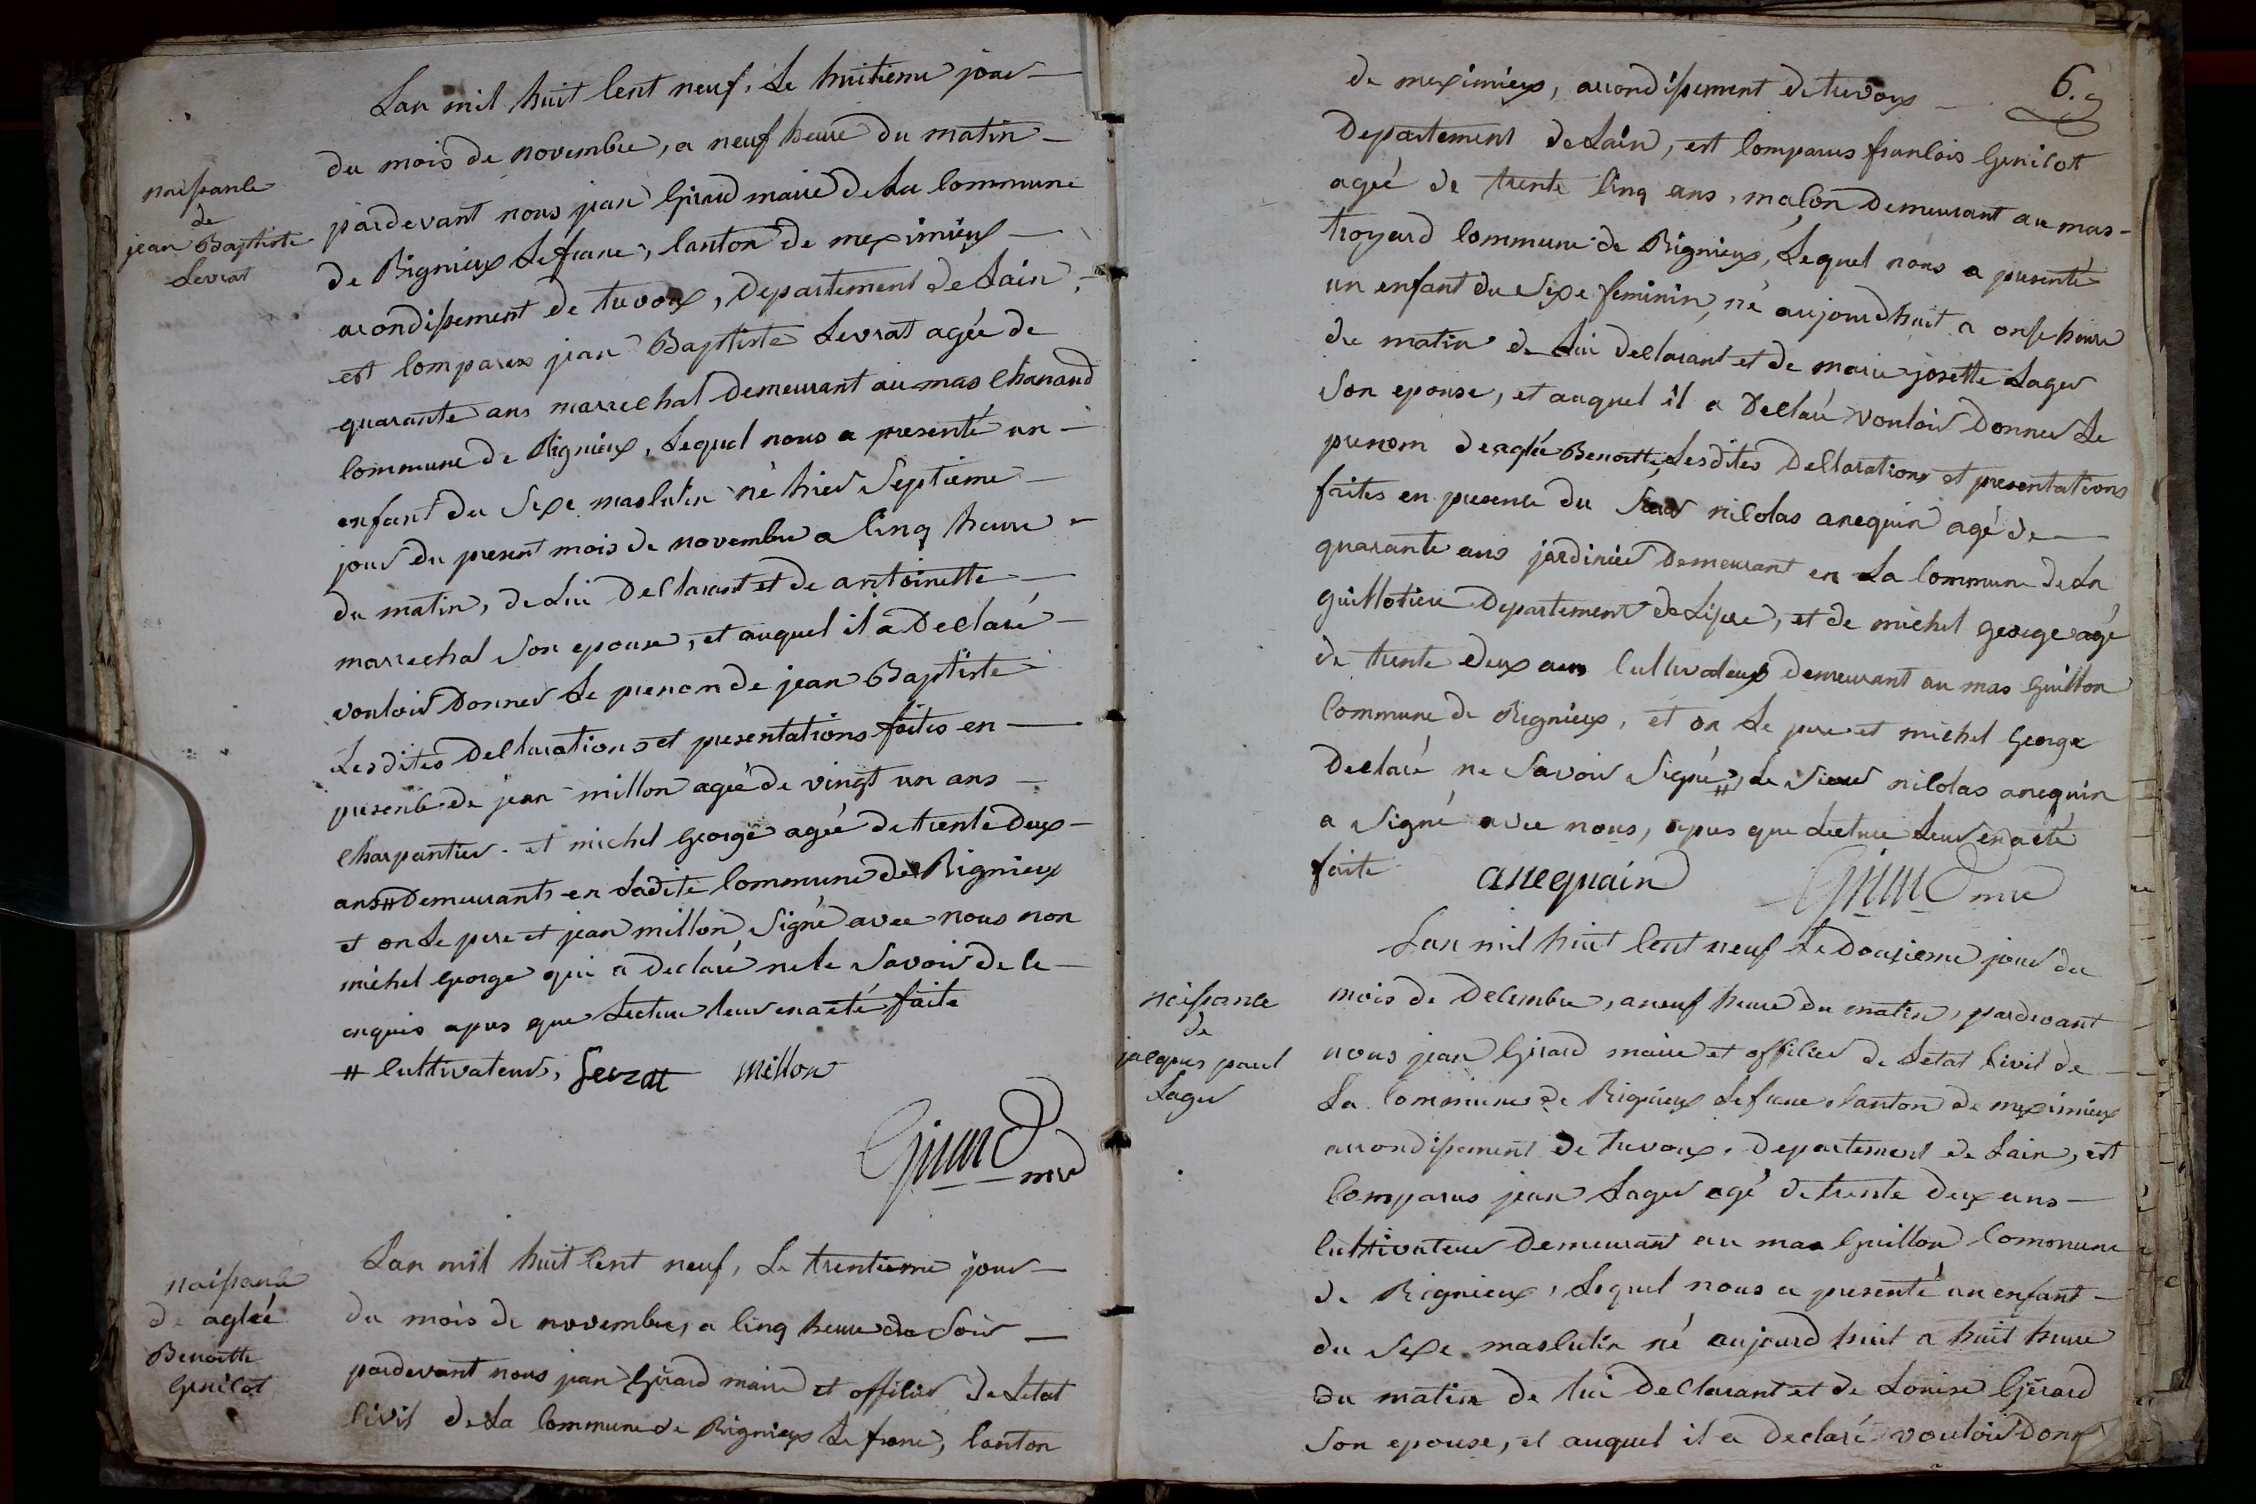 naissance
de
jean Baptiste
Levrat
Lan mil huit Cent neuf, Le huitieme jour
du mois de novembre, a neuf heure du matin
pardevant nous jean Girard maire de La Commune
de Rignieux Lefranc, Canton de meximieux
arondissement de trevoux, Departement de Lain,
est Comparus jean Baptiste Levrat agée de
quarante ans marrechal Demeurant au mas Chanaud
Commune de Rignieux, Lequel nous a presenté un
enfant du Sexe masculin né hier Septieme
jour du present mois de novembre a Cinq heure
du matin, de Lui Declarant et de antoinette
marrechal Son epouse, et auquel il a Declaré
vouloir Donner Le prenom de jean Baptiste
Lesdites Declarations et presentations faites en
presence de jean millon agée de vingt un ans
Charpentier et michel George agée de trente Deux
ans # Demeurants en Ladite Commune de Rignieux
et on Le pere et jean millon Signé avec nous non
michel George qui a Declaré ne le Savoir de Ce
enquis apres que Lecture leur en a eté faite
# Cultivateur, Levratt millon
Girard mre
naissance
de aglaé
Benoitte
Genicot
Lan mil huit Cent neuf, Le trentieme jour
du mois de novembre, a Cinq heure du Soir
pardevant nous jean Girard maire et officier de Letat
Civil de La Commune de Rignieux Le franc, Canton
6.
de meximieux, arrondissement de trevoux
Departement de Lain, est Comparus francois Genicot
ageé de trente Cinq ans, maçon Demeurant au mas
troyard Commune de Rignieux, Lequel nous a presenté
un enfant du Sexe feminin, né aujourdhuit a onse heure
du matin de Lui declarant et de marie josette Lager
Son epouse, et auquel il a Declaré vouloir Donner Le
prenom de aglaé Benoitte, Lesdites Declarations et presentations
faites en presence du Sieur nicolas anequin agé de
quarante ans jardinier Demeurant en La Commune de La
guillotiere Departement de Lisere, et de michel george agé
de trente deux ans Cultivateur demeurant au mas Guillon
Commune de Rignieux, et on Le pere et michel George
Declaré ne Savoir Signé #, Le Sieur nicolas anequin
a Signé avec nous, apres que Lecture Leur en a eté
faite
anequain Girard mre
naissance
de
jacques paul
Lager
Lan mil huit Cent neuf Le Douzieme jour du
mois de Decembre, a neuf heure du matin, pardevant
nous jean Girard maire et officier de Letat Civil de
La Commune de Rignieux Lefranc Canton de meximieux
arrondissement de trevoux, Departement de Lain, est
Comparus jean Lager agé de trente deux ans
Cultivateur Demeurant au mas Guillon Commune
de Rignieux, Lequel nous a presenté un enfant
du Sexe masculin né aujourd huit a huit heure
du matin de lui Declarant et de Louise Gerard
Son epouse, et auquel il a Declaré vouloir Donn